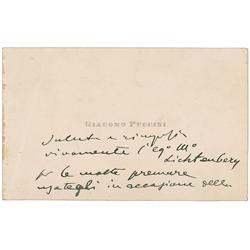 GIACOMO PUCCINI
saluta e ringrazia
vivamente l'eg° M°
Lichtenberg
per le molte premure
usategli in occasione della